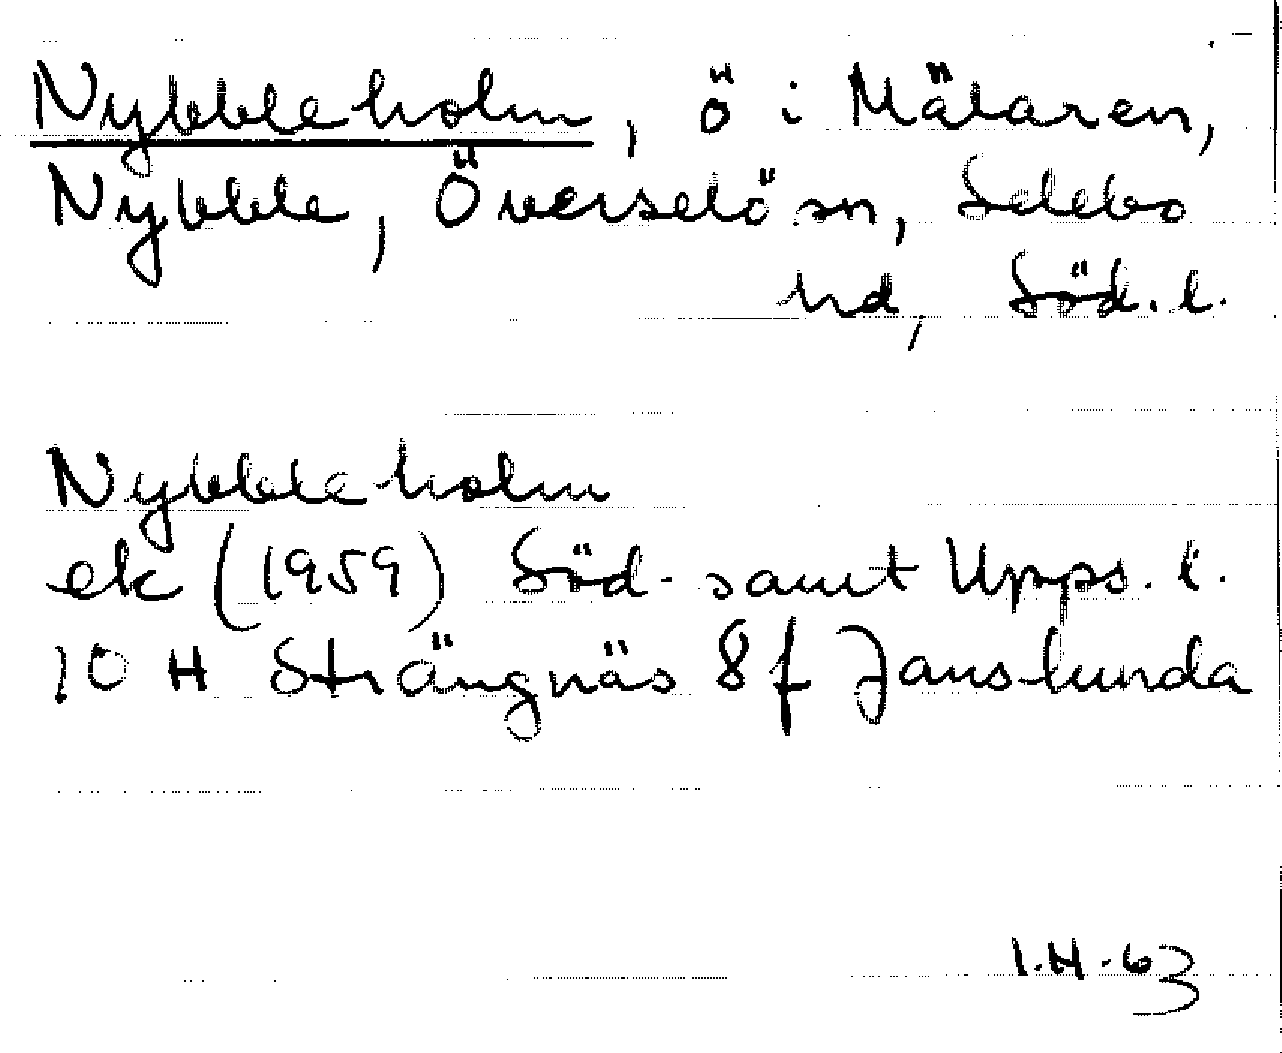 Nybbleholm, ö i Mälaren,
Nybble, Överselö sn, Selebo
hd, Söd. l.
Nybbleholm
ek (1959) Söd- samt Upps. l.
10 H Strängnäs 8 f Janslunda
I.H.63